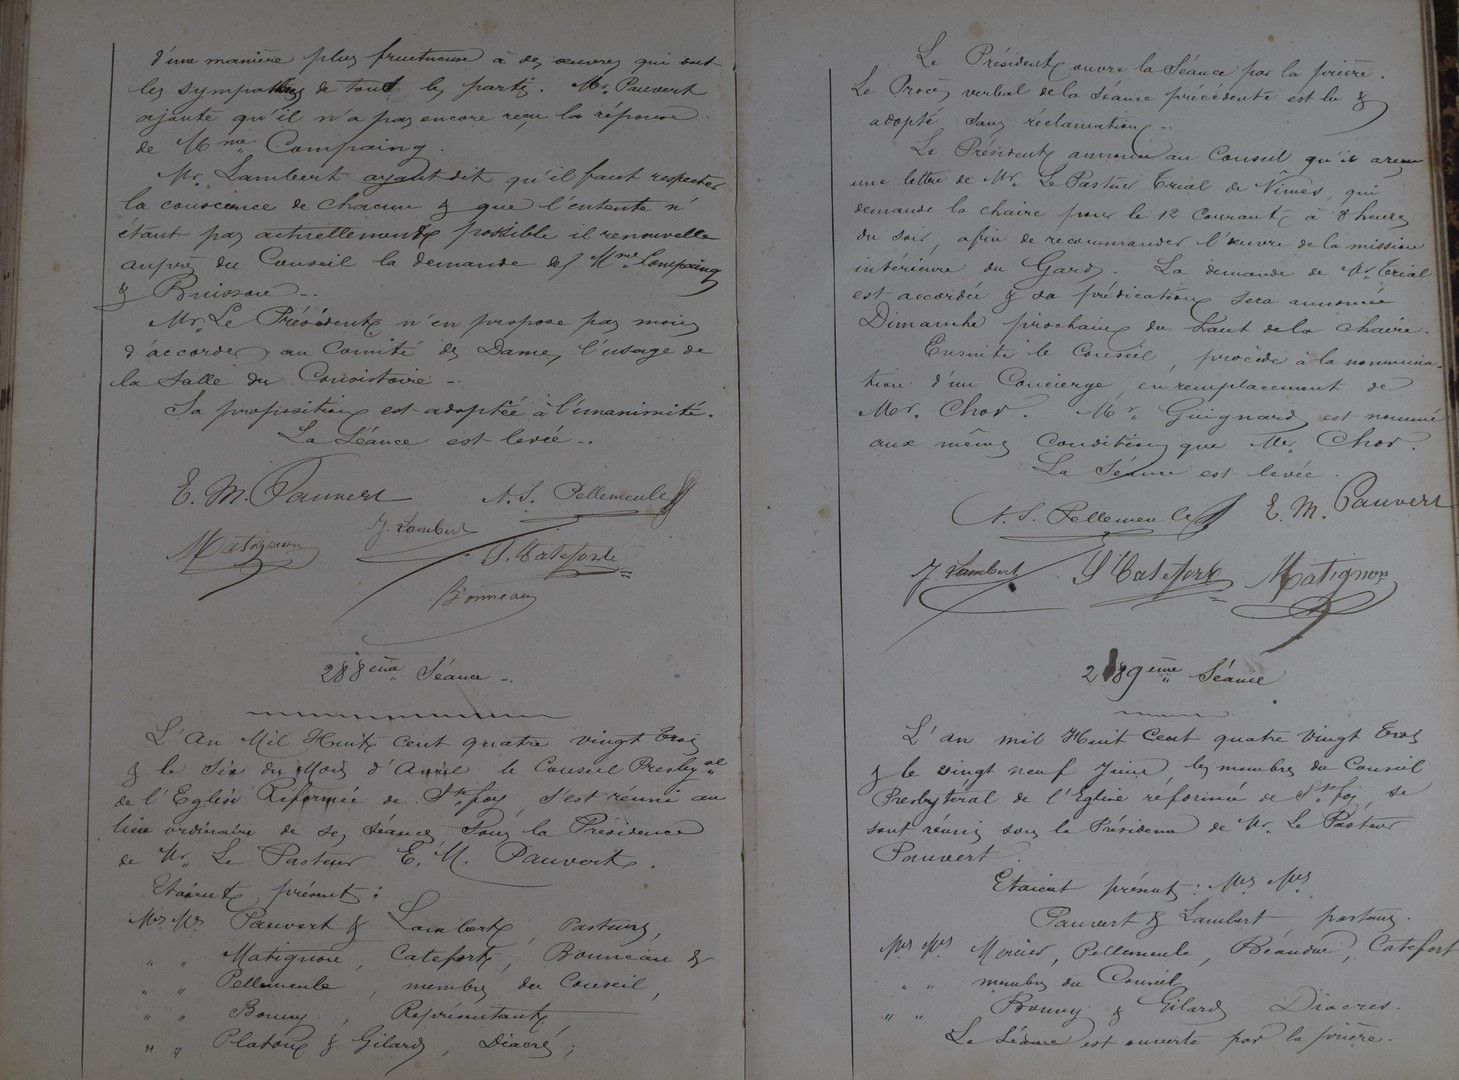 d'une manière plus fructueuse à des œuvres qui ont
les sympathies de tout les partis. Mr. Pauvert
ajoute qu'il n'a pas encore reçu la réponse
de Mme Compaing.
Mr. Lambert ayant dit qu'il faut respecter
la conscience de chacun & que l'entente n'
étant pas actuellement possible il renouvelle
auprès du Conseil la demande de Mme Compaing
& Buisson -.
Mr. Le Président n'en propose pas moins
d'accorder au Comité des Dames l'usage de
la Salle du Consistoire -.
Sa proposition est adoptée à l'unanimité.
La Séance est levée -.
E. M. Pauvert A. S. Pellemeule
J. Lambert
Matignon S. Cateforte
Bonneau
288eme Séance -.
L'An Mil Huit Cent quatre vingt trois
& le Six du Mois d'Avril le Conseil Presbyal
de l'Eglise Réformée de Ste foy, s'est réuni au
lieu ordinaire de ses Séances sous la Présidence
de Mr. Le Pasteur E. M. Pauvert.
Etaient présents :
Mrs Mrs Pauvert & Lambert, Pasteurs,
" " Matignon, Catefort, Bonneau &
" " Pellemeule, membres du Conseil,
" " Bonny, Représentant
" " Platoux & Gilard, Diacres ;
Le Président ouvre la Séance par la prière.
Le Procès verbal de la Séance précédente est lu &
adopté sans réclamation -.
Le Président annonce au Conseil qu'il a reçu
une lettre de Mr. Le Pasteur Trial de Nîmes, qui
demande la chaire pour le 12 Courant à 8 heures
du soir, afin de recommander l'œuvre de la mission
intérieure du Gard. La demande de Mr. Trial
est accordée & sa prédication sera annoncée
Dimanche prochain du haut de la chaire.
Ensuite le Conseil, procède à la nomina-
tion d'un Concierge, en remplacement de
Mr. Chor. Mr. Guignard est nommé
aux mêmes Conditions que Mr. Chor.
La Séance est levée.
A. S. Pellemeule E. M. Pauvert
J. Lambert S. Catefort Matignon
289eme Séance
L'an mil Huit Cent quatre vingt trois
& le vingt neuf Juin, les membres du Conseil
Presbytéral de l'Eglise réformée de Ste foy, se
sont réunis sous la Présidence de Mr. Le Pasteur
Pauvert.
Etaient présents : Mrs Mrs
Pauvert & Lambert, pasteurs.
Mrs Mrs Mercier, Pellemeule, Béandue, Catefort
" " membres du Conseil
" " Bonny & Gilard Diacres.
La Séance est ouverte par la prière.